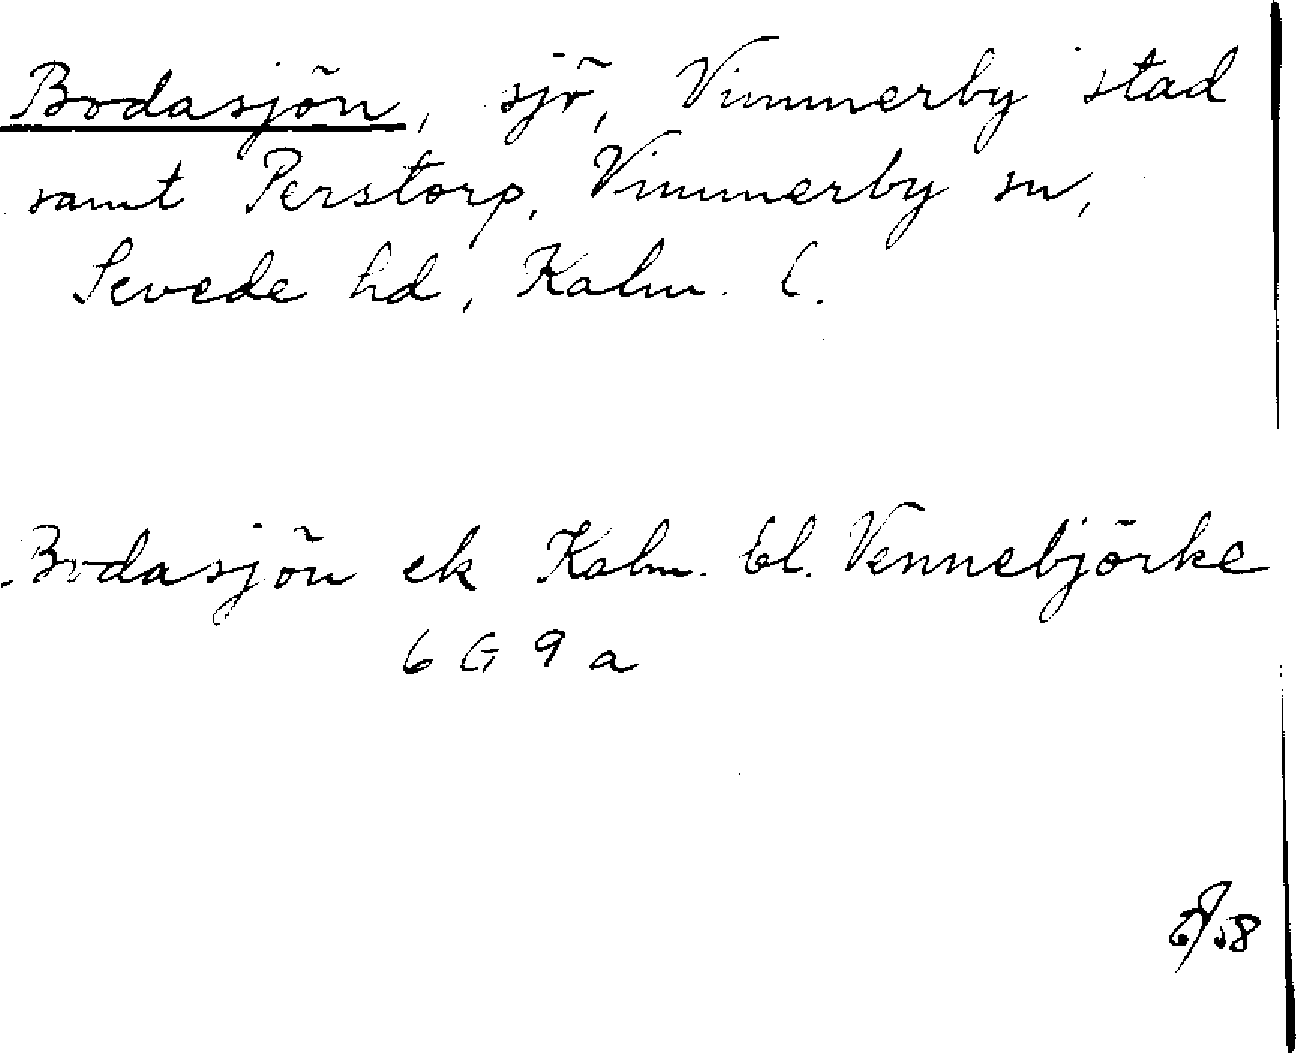 Bodasjön, sjö, Vimmerby stad
samt Perstorp, Vimmerby sn,
Sevede hd, Kalm. l.
Bodasjön ek Kalm. bl. Vennebjörke
6 G 9 a